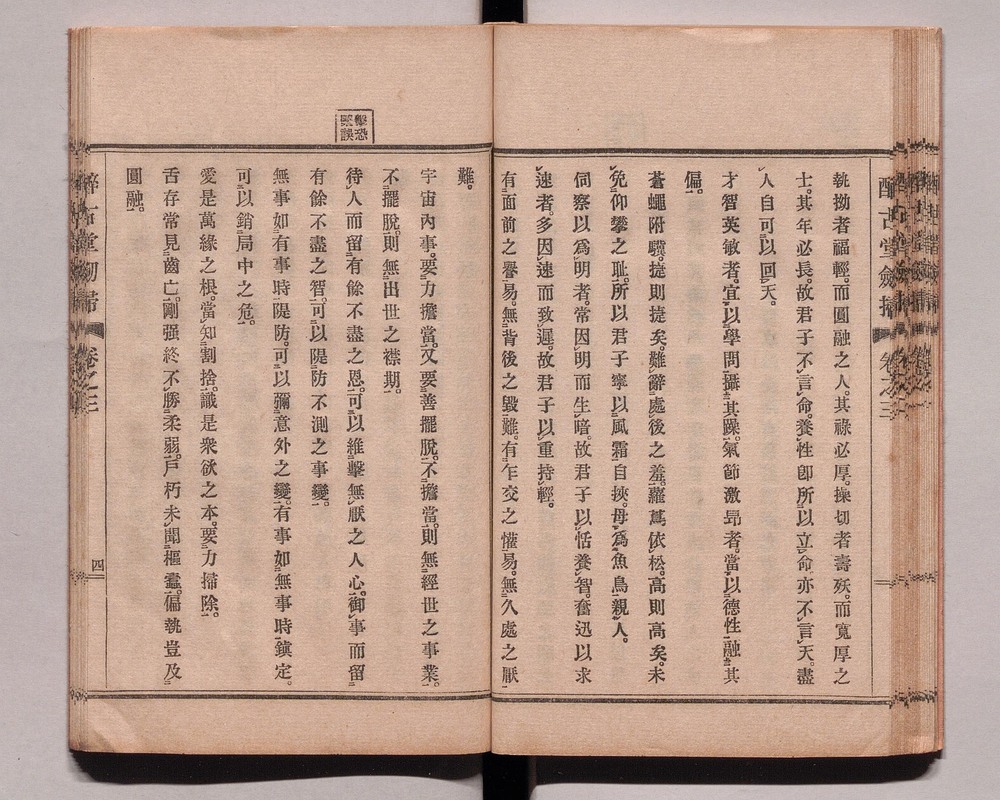 酔古堂劍掃 卷之三
執拗者福輕。而圓融之人。其祿必厚。操切者壽殀。而寬厚之
士。其年必長。故君子不言命。養性卽所以立命亦不言天。盡
人自可以回天。
才智英敏者。宜以學問攝其躁。氣節激昻者。當以德性融其
偏。
蒼蠅附驥。捷則捷矣。難辭處後之羞。蘿蔦依松。高則高矣。未
免仰攀之耻。所以君子寧以風霜自挾。毋爲魚鳥親人。
伺察以爲明者。常因明而生暗。故君子以恬養智。奮迅以求
速者。多因速而致遲。故君子以重持輕。
有面前之譽易。無背後之毀難。有乍交之懽易。無久處之厭
難。
宇宙內事。要力擔當。又要善擺脫。不擔當。則無經世之事業。
不擺脫。則無出世之襟期。
擊恐
繫誤
待人而留有餘不盡之恩。可以維擊無厭之人心。御事而留
有餘不盡之智。可以隄防不測之事變。
無事如有事時隄防。可以彌意外之變。有事如無事時鎭定。
可以銷局中之危。
愛是萬緣之根。當知割捨。識是衆欲之本。要力掃除。
舌存常見齒亡。剛强終不勝柔弱。戶朽未聞樞蠹。偏執豈及
圓融。
酔古堂劍掃 卷之三
四